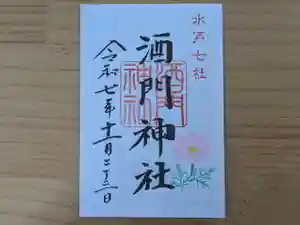 水戸七社
酒門神社
令和七年十二月二十三日
酒門
神社